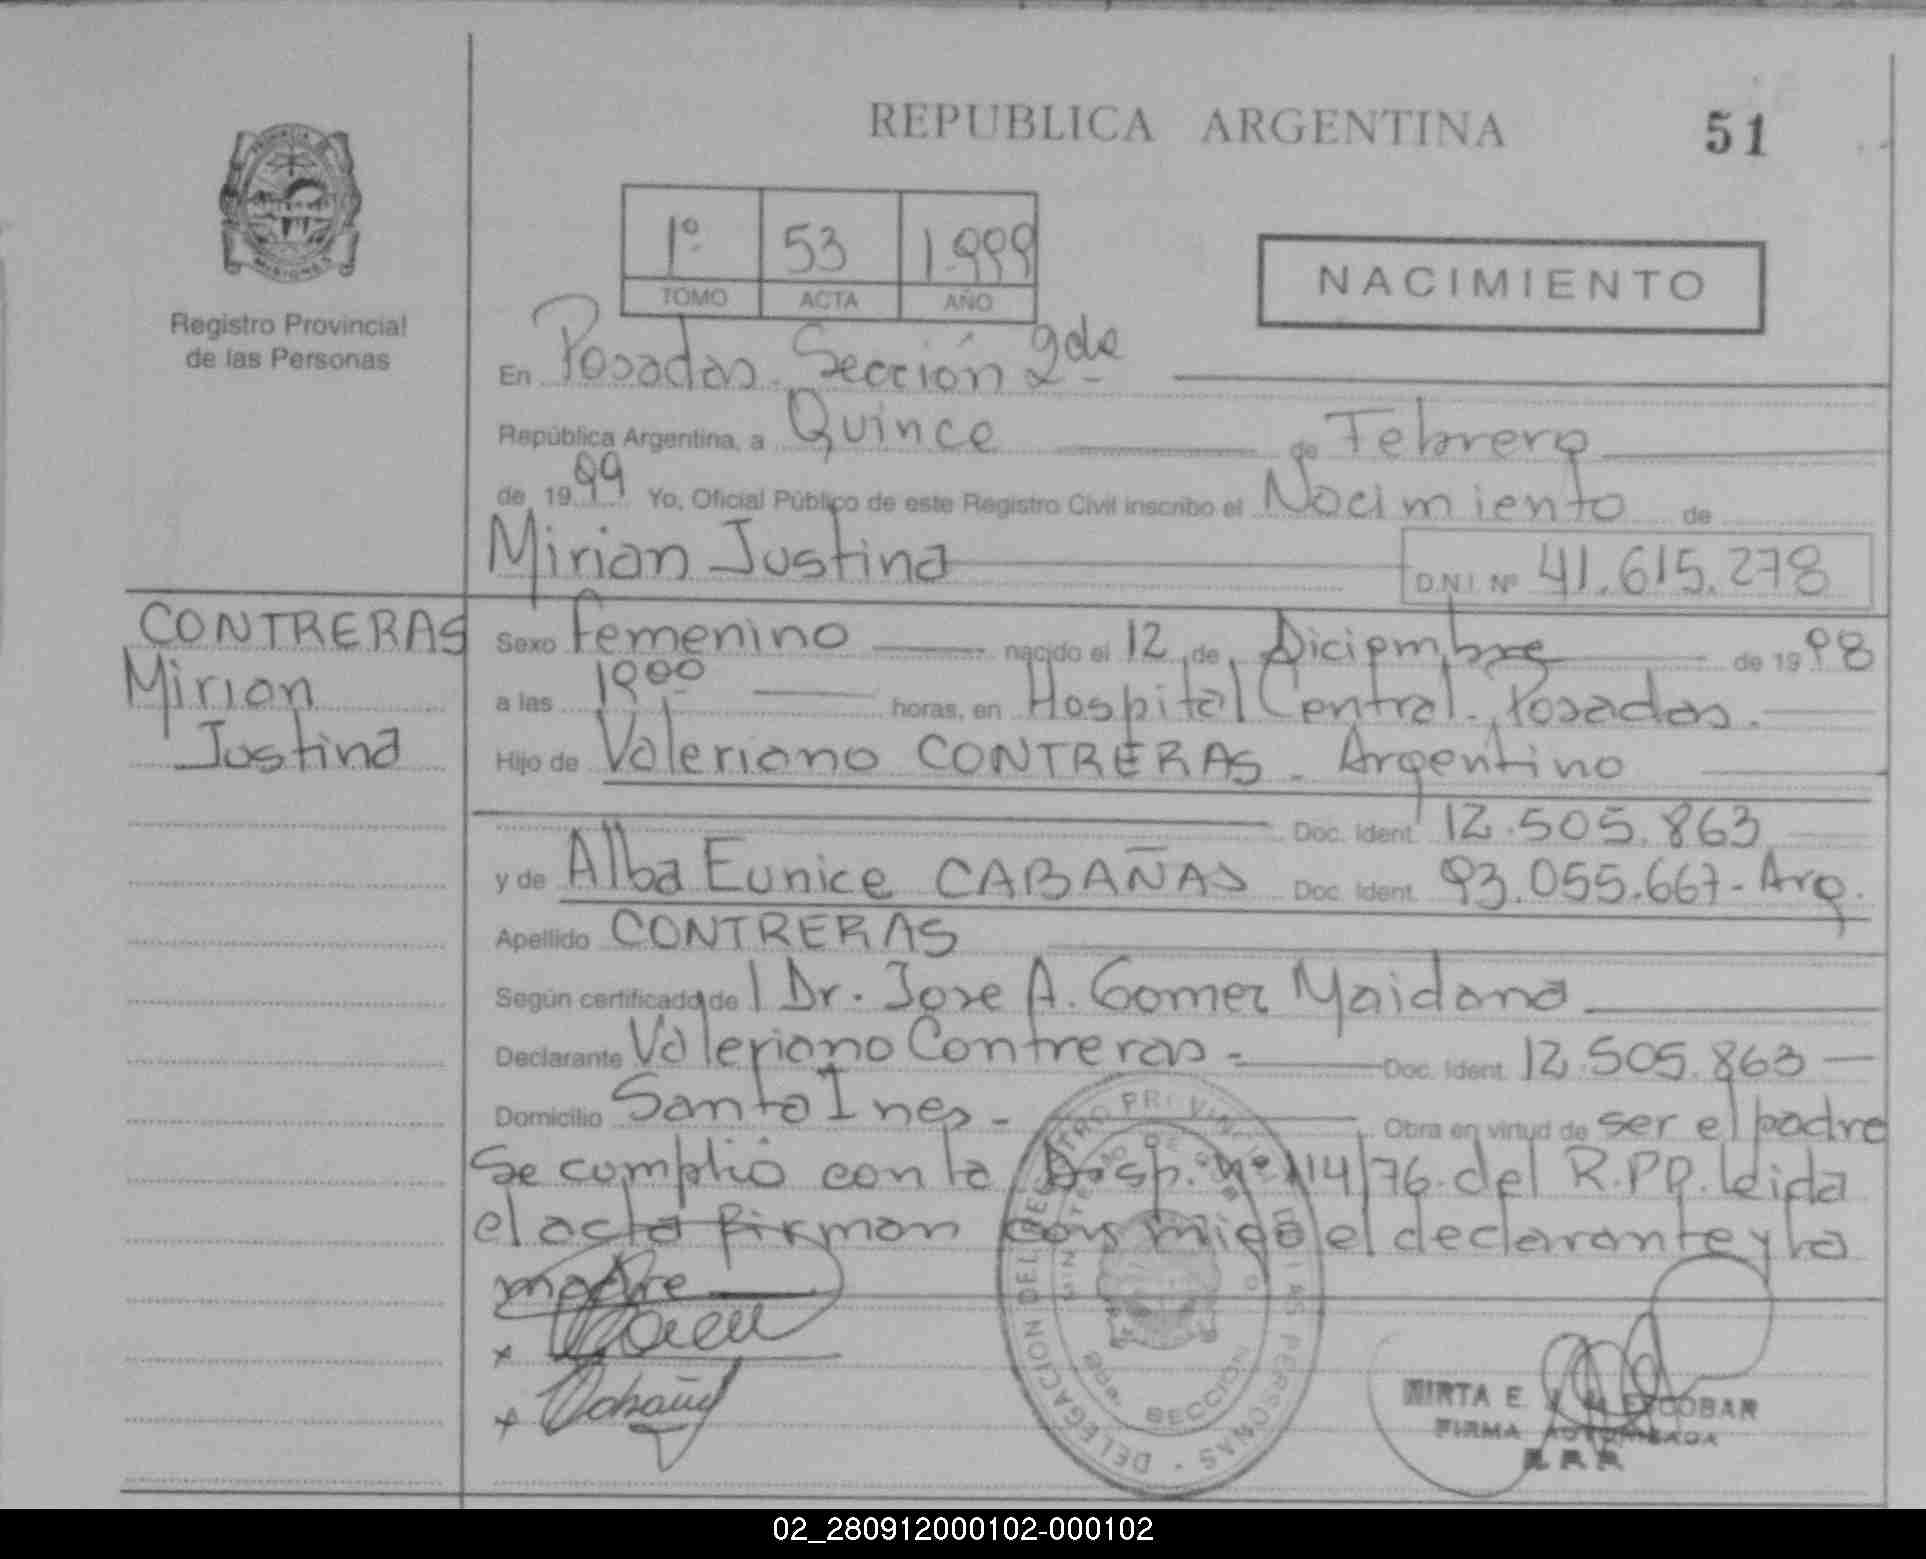 REPUBLICA ARGENTINA
51
1º 53 1.999
TOMO ACTA AÑO
NACIMIENTO
Registro Provincial
de las Personas
En Posadas. Sección 2da
República Argentina, a Quince de Febrero
de 1999 Yo, Oficial Público de este Registro Civil inscribo el Nacimiento de
Mirian Justina D.N.I. Nº 41.615.278
CONTRERAS
Mirian
Justina
Sexo Femenino nacido el 12 de Diciembre de 1998
a las horas, en Hospital Central. Posadas.
Hijo de Valeriano CONTRERAS - Argentino
Doc. Ident. 12.505.863
y de Alba Eunice CABAÑAS Doc. Ident. 93.055.667- Arg.
Apellido CONTRERAS
Según certificado de Dr. Jose A. Gomez Maidana
Declarante Valeriano Contreras - Doc. Ident. 12.505.863
Domicilio Santa Ines - Obra en virtud de ser el padre
Se cumplió con la Disp. Nº 114/76 del R.P.P. leida
el acta firman conmigo el declarante y la
madre
DELEGACION DEL REGISTRO PROVINCIAL DE LAS PERSONAS
SECCION
MIRTA E. ESCOBAR
FIRMA AUTORIZADA
02_280912000102-000102